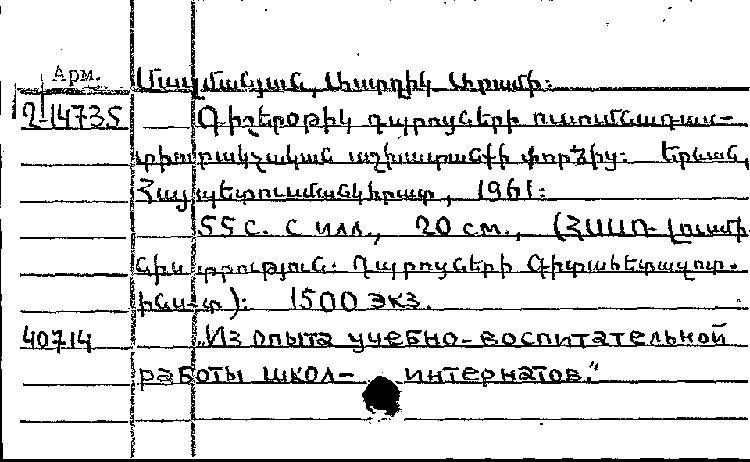 Арм.
Մայմանյան, Արամի:
2-14735 Գիշերօթիկ դպրոցների ուսումնադաս-
տիարակչական աշխատանքի փորձից: Երևան,
Հայպետուսմանկհրատ, 1961:
55 с. с илл., 20 см., (ՀՍՍՌ Լուսմի-
նիստրություն: Դպրոցների Գիտահետազոտ.
ինս-տ): 1500 экз.
40714 „Из опыта учебно-воспитательной
работы школ- интернатов."